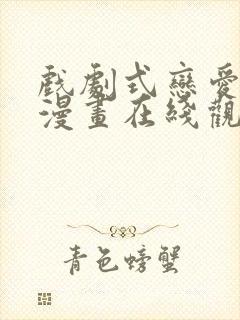 戲劇式戀愛
漫畫在綫觀
青色螃蟹